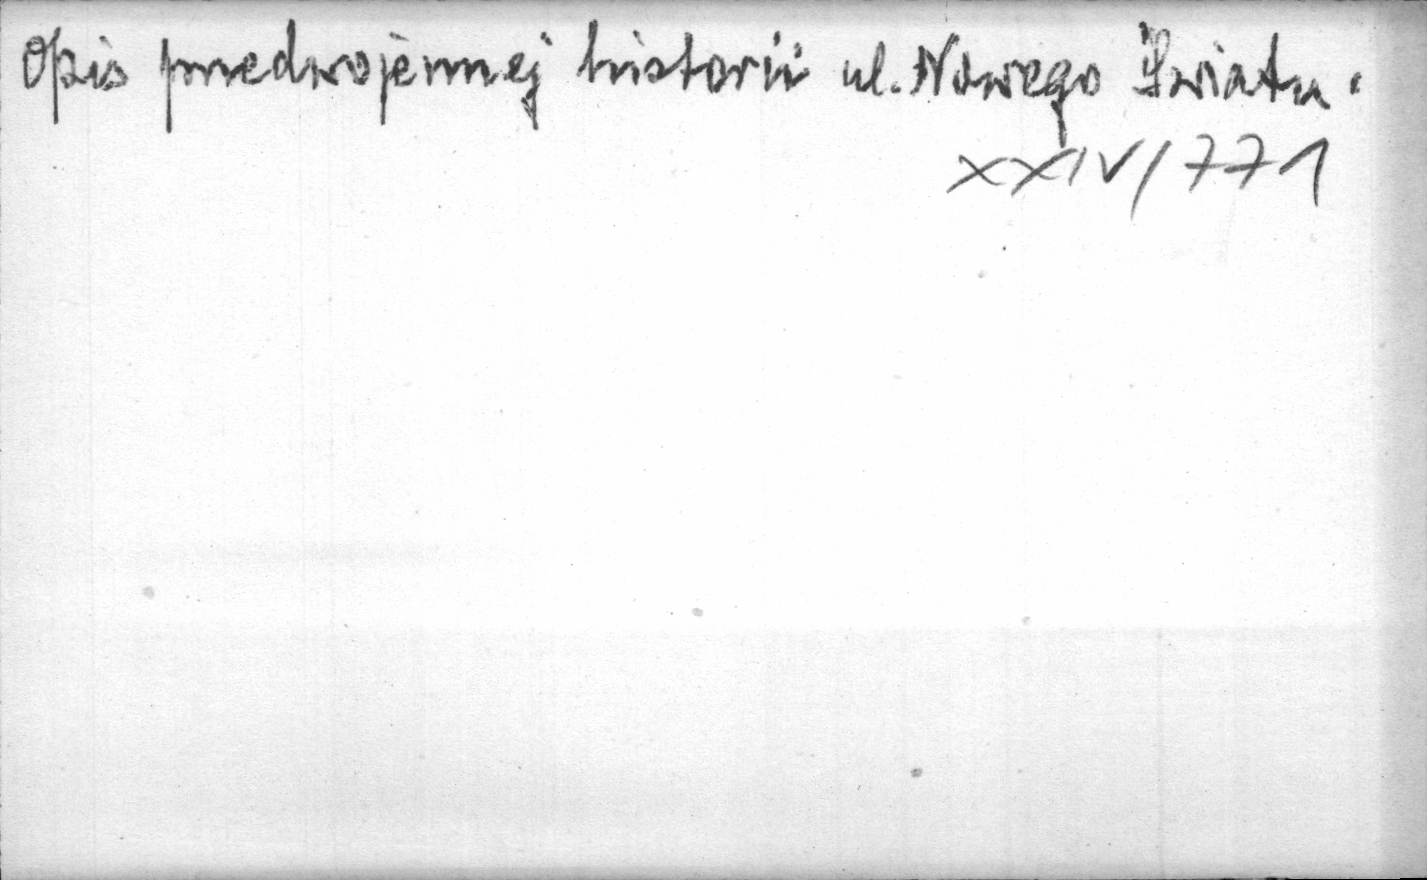 Opis przedwojennej historii ul. Nowego Światu.
XXIV/771